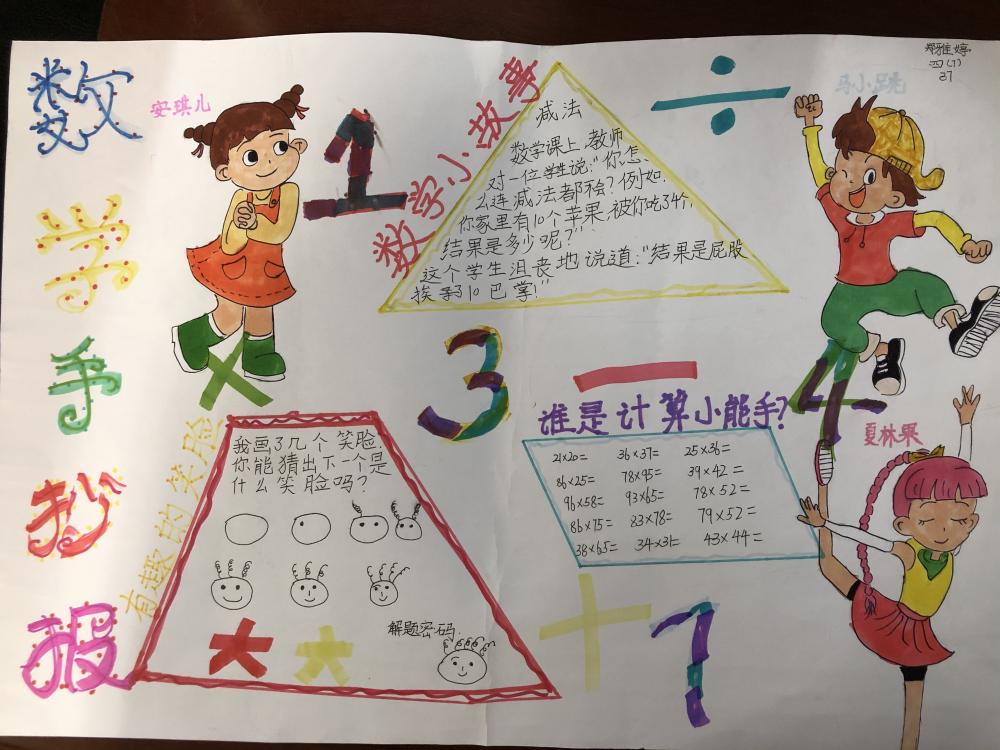 数
学
手
抄
报
安琪儿
1
数学小故事
减法
数学课上,教师
对一位学生说:“你怎
么连减法都不会?例如,
你家里有10个苹果,被你吃了4个,
结果是多少呢?”
这个学生沮丧地说道:“结果是屁股
挨了10巴掌!”
÷
马小跳
郑雅婷
四(7)
37
×
3
－
4
有趣的笑脸
我画了几个笑脸,
你能猜出下一个是
什么笑脸吗?
解题密码
大
大
谁是计算小能手?
21×20= 36×37= 25×36=
86×25= 78×95= 39×42=
96×58= 93×65= 78×52=
86×75= 83×78= 79×52=
38×65= 34×31= 43×44=
夏林果
+
7